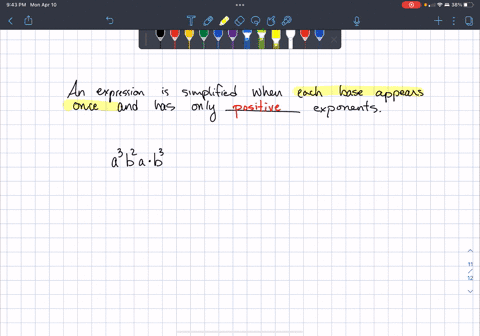 9:43 PM Mon Apr 10
38%
An expression is simplified when each base appears
once and has only positive exponents.
a³b²a·b³
11
/
12